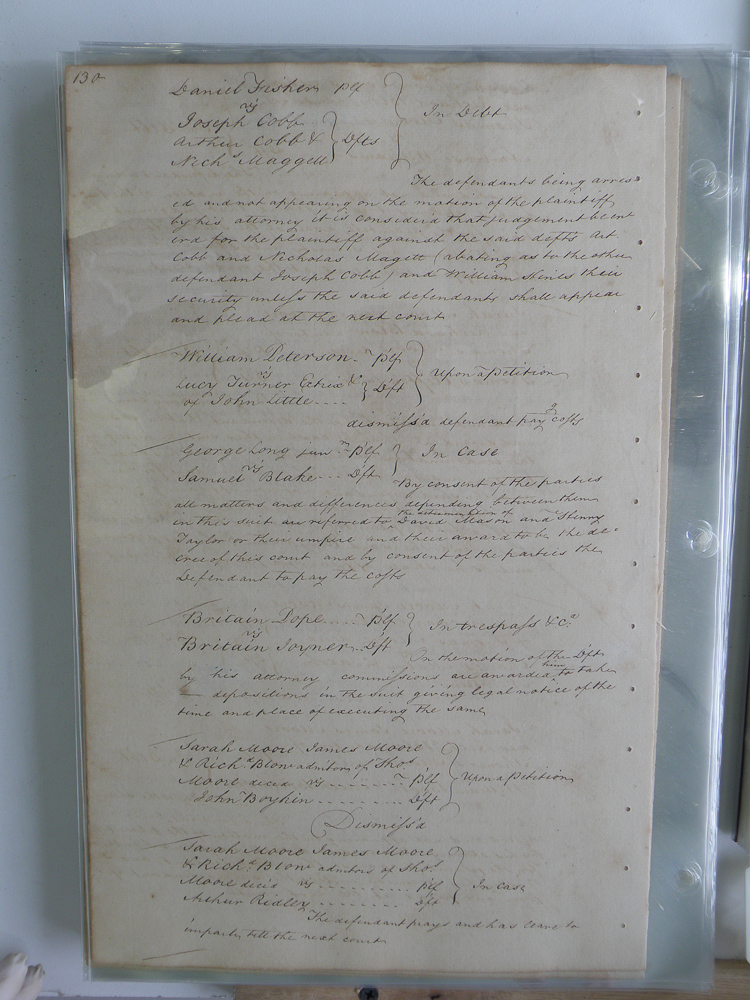 130
Daniel Fisher plf
vs
Joseph Cobb
Arthur Cobb & } Dfts } In Debt
Nich.s Maggett
The defendants being arres
ed and not appearing on the motion of the plaintiff
by his attorney it is considerd that judgement be ent
erd for the plaintiff against the said defts Art
Cobb and Nicholas Magett (abating as to the other
defendant Joseph Cobb) and William Hines their
security unless the said defendants shall appear
and plead at the next court
William Peterson plf
vs
Lucy Turner Extrix &c } Dft } Upon a Petition
of John Little
dismiss'd defendant payg costs
George Long jun.r plf } In Case
vs
Samuel Blake Dft
By consent of the parties
all matters and differences depending between them
the determination of
in this suit are referred to David Mason and Henry
Taylor or their umpire and their award to be the de
cree of this court and by consent of the parties the
Defendant to pay the costs
Britain Pope plf } In trespass &c.a
vs
Britain Joyner Dft
On the motion of the Dft
him
by his attorney commissions are awarded to take
depositions in the suit giving legal notice of the
time and place of executing the same
Sarah Moore James Moore
& Rich.d Blow admtors of Tho.s
Moore decd vs plf } Upon a Petition
John Boykin Dft
Dismiss'd
Sarah Moore James Moore
& Rich.d Blow admtors of Tho.s
Moore decd vs plf } In Case
Arthur Ridley Dft
The defendant prays and has leave to
imparle till the next court